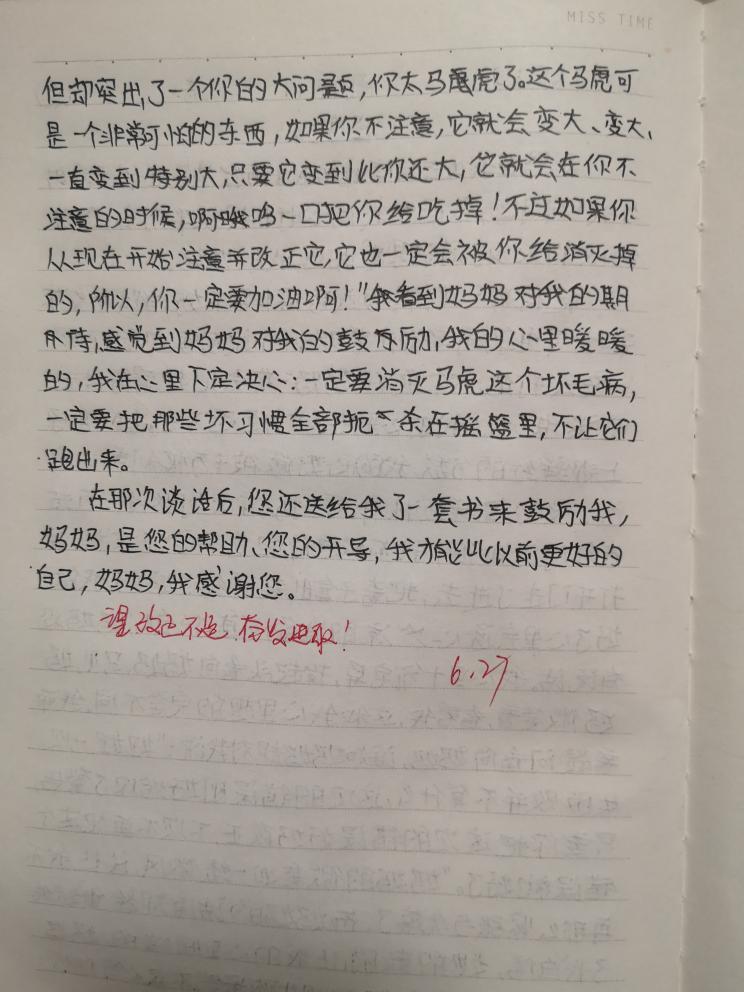 MISS TIME
但却突出了一个你的大问题，你太马虎了。这个马虎可
是一个非常可怕的东西，如果你不注意，它就会变大、变大、
一直变到特别大，只要它变到比你还大，它就会在你不
注意的时候，啊哦呜一口把你给吃掉！不过如果你
从现在开始注意并改正它，它也一定会被你给消灭掉
的，所以，你一定要加油啊！"我看到妈妈对我的期
待，感觉到妈妈对我的鼓励，我的心里暖暖
的，我在心里下定决心：一定要消灭马虎这个坏毛病，
一定要把那些坏习惯全部扼杀在摇篮里，不让它们
跑出来。
在那次谈话后，您还送给我了一套书来鼓励我，
妈妈，是您的帮助、您的开导，我才能比以前更好的
自己，妈妈，我感谢您。
望改正不足，奋发进取！
6.27